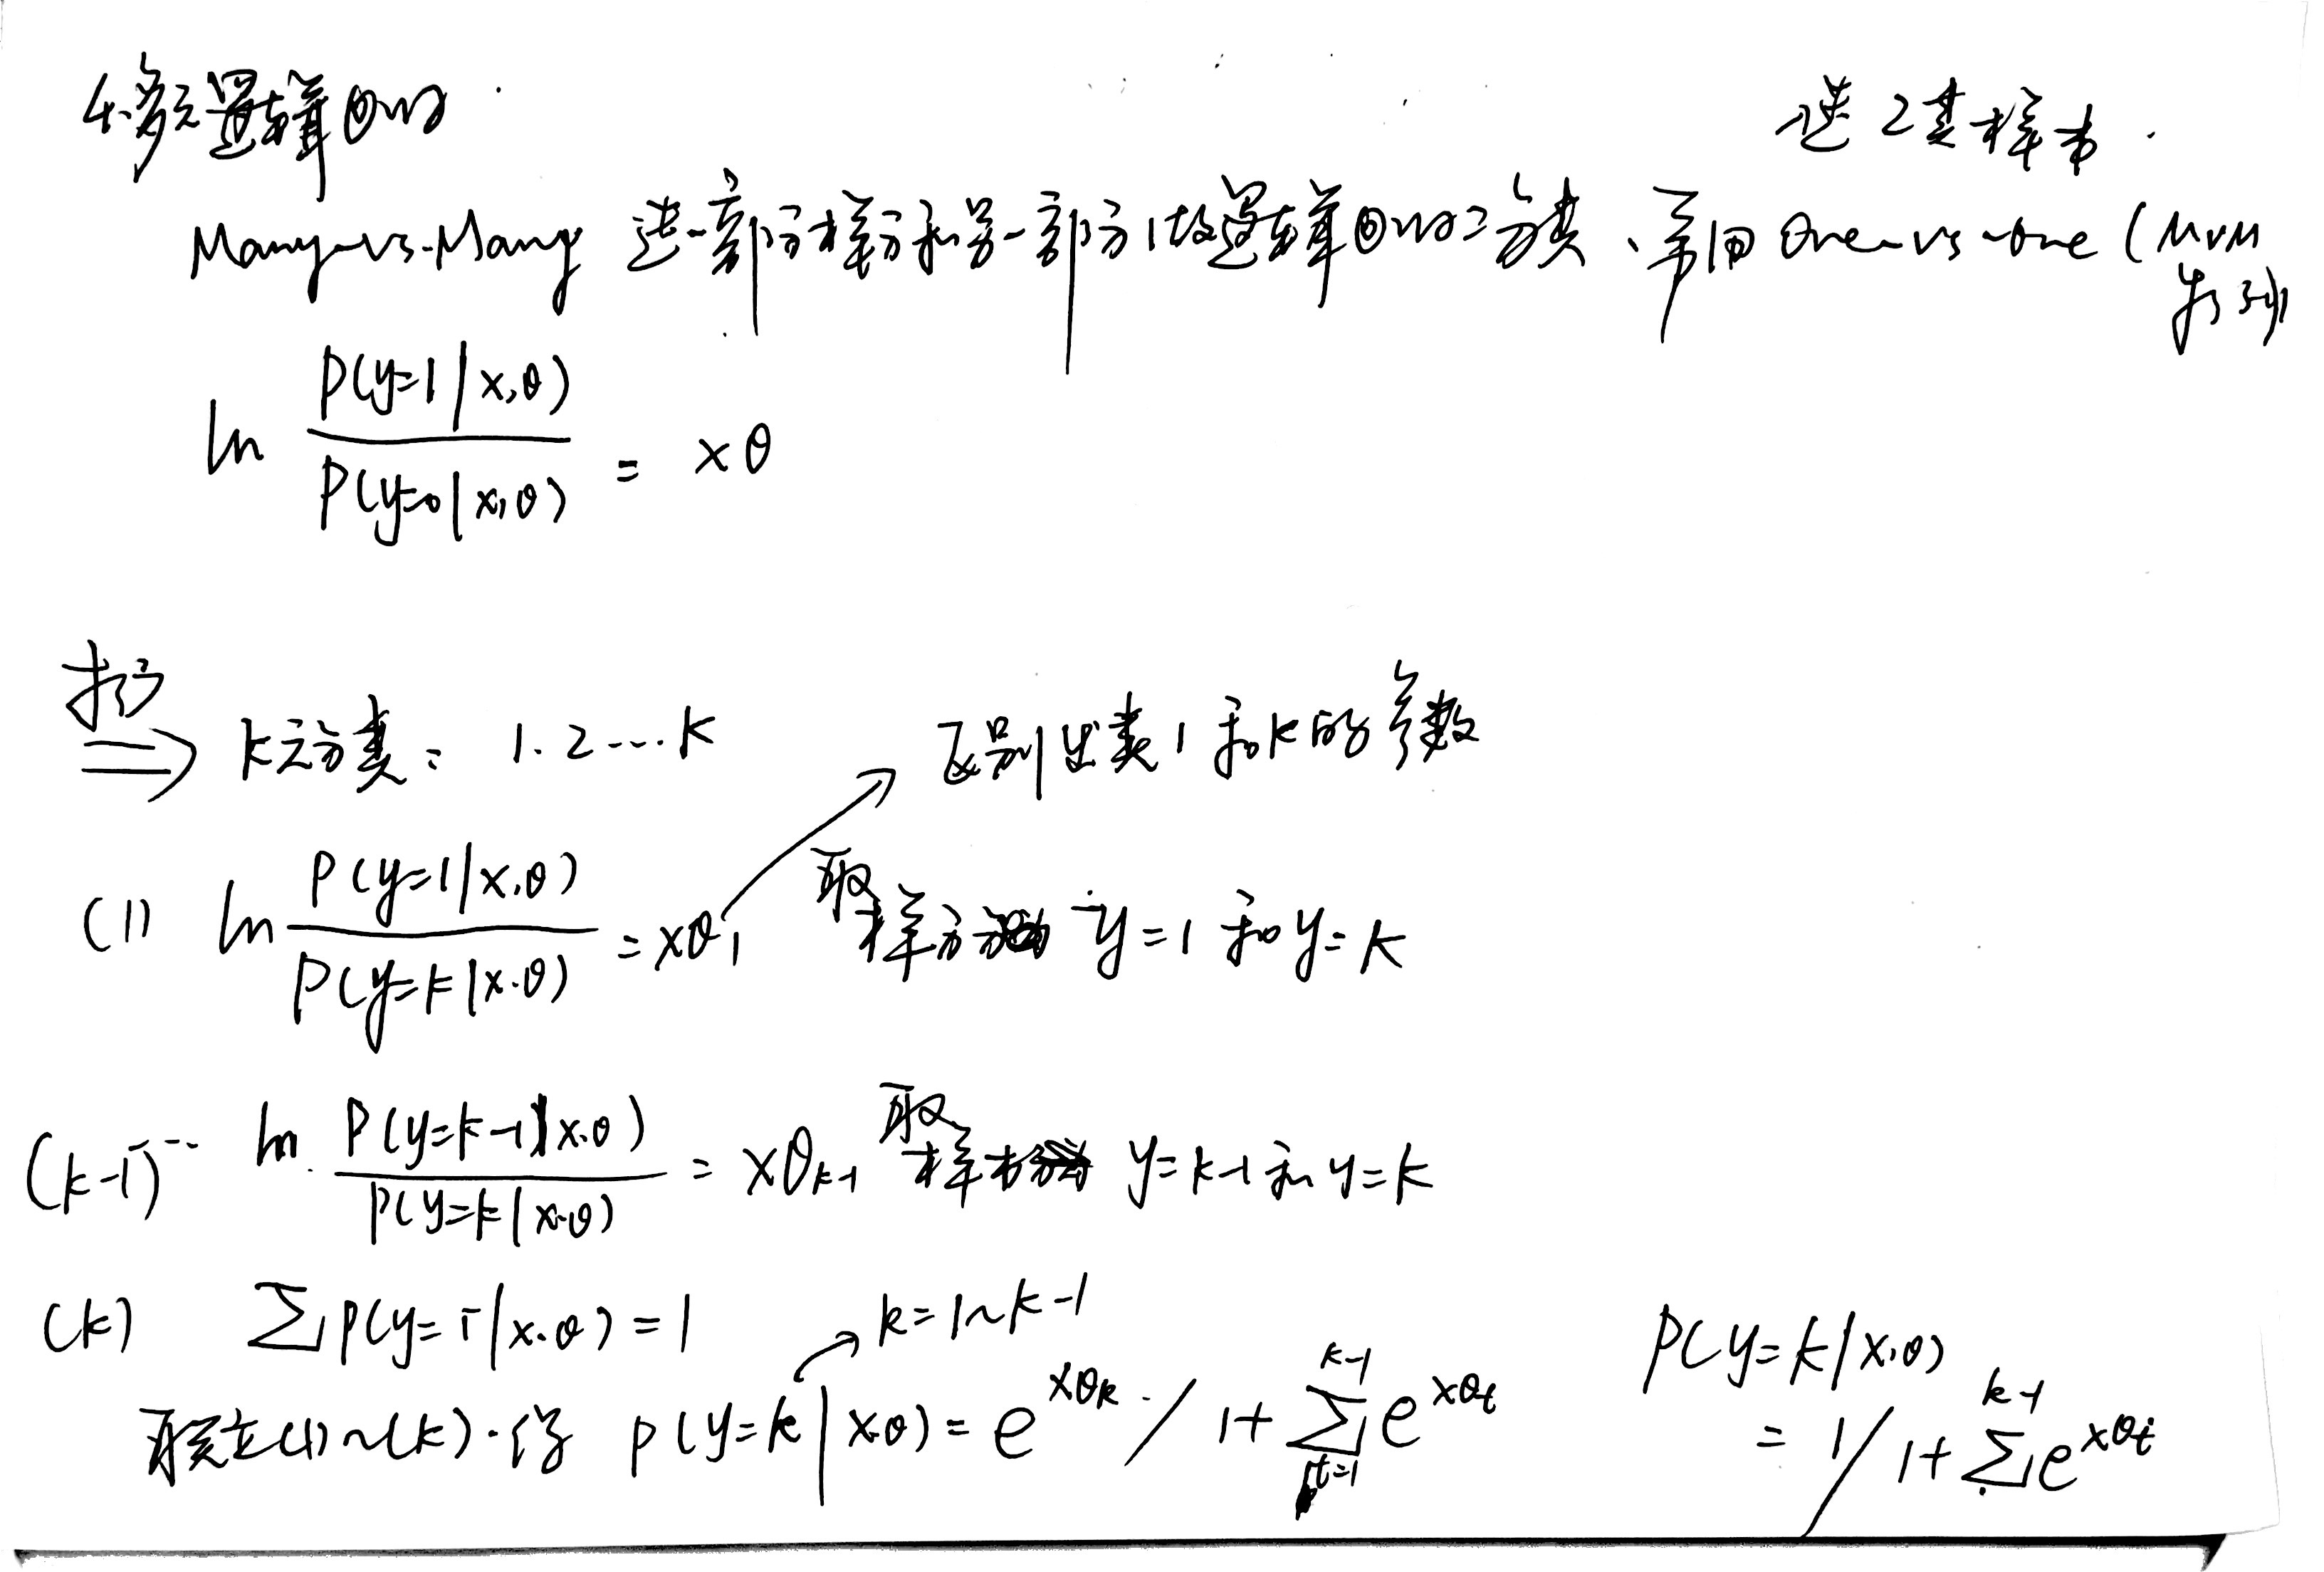 4.多元逻辑回归
选2类样本.
Many-vs-Many 选一部分样本和另一部分做逻辑回归二分类、常用 One-vs-one (MvM
特例)
ln P(y=1|x,θ) / P(y=0|x,θ) = xθ
推广
⇒ K元分类: 1.2…K
区别出类1和K的参数
(1) ln P(y=1|x,θ) / P(y=K|x,θ) = xθ₁ 取样本 y=1 和 y=K
(K-1) ln P(y=K-1|x,θ) / P(y=K|x,θ) = xθ_{K-1} 取样本 y=K-1 和 y=K
(K) ∑P(y=i|x,θ)=1 k=1~K-1
联立(1)~(K).得 P(y=k|x,θ) = e^{xθ_k} / 1+∑_{t=1}^{K-1} e^{xθ_t}
P(y=K|x,θ)
= 1 / 1+∑^{K-1} e^{xθ_t}